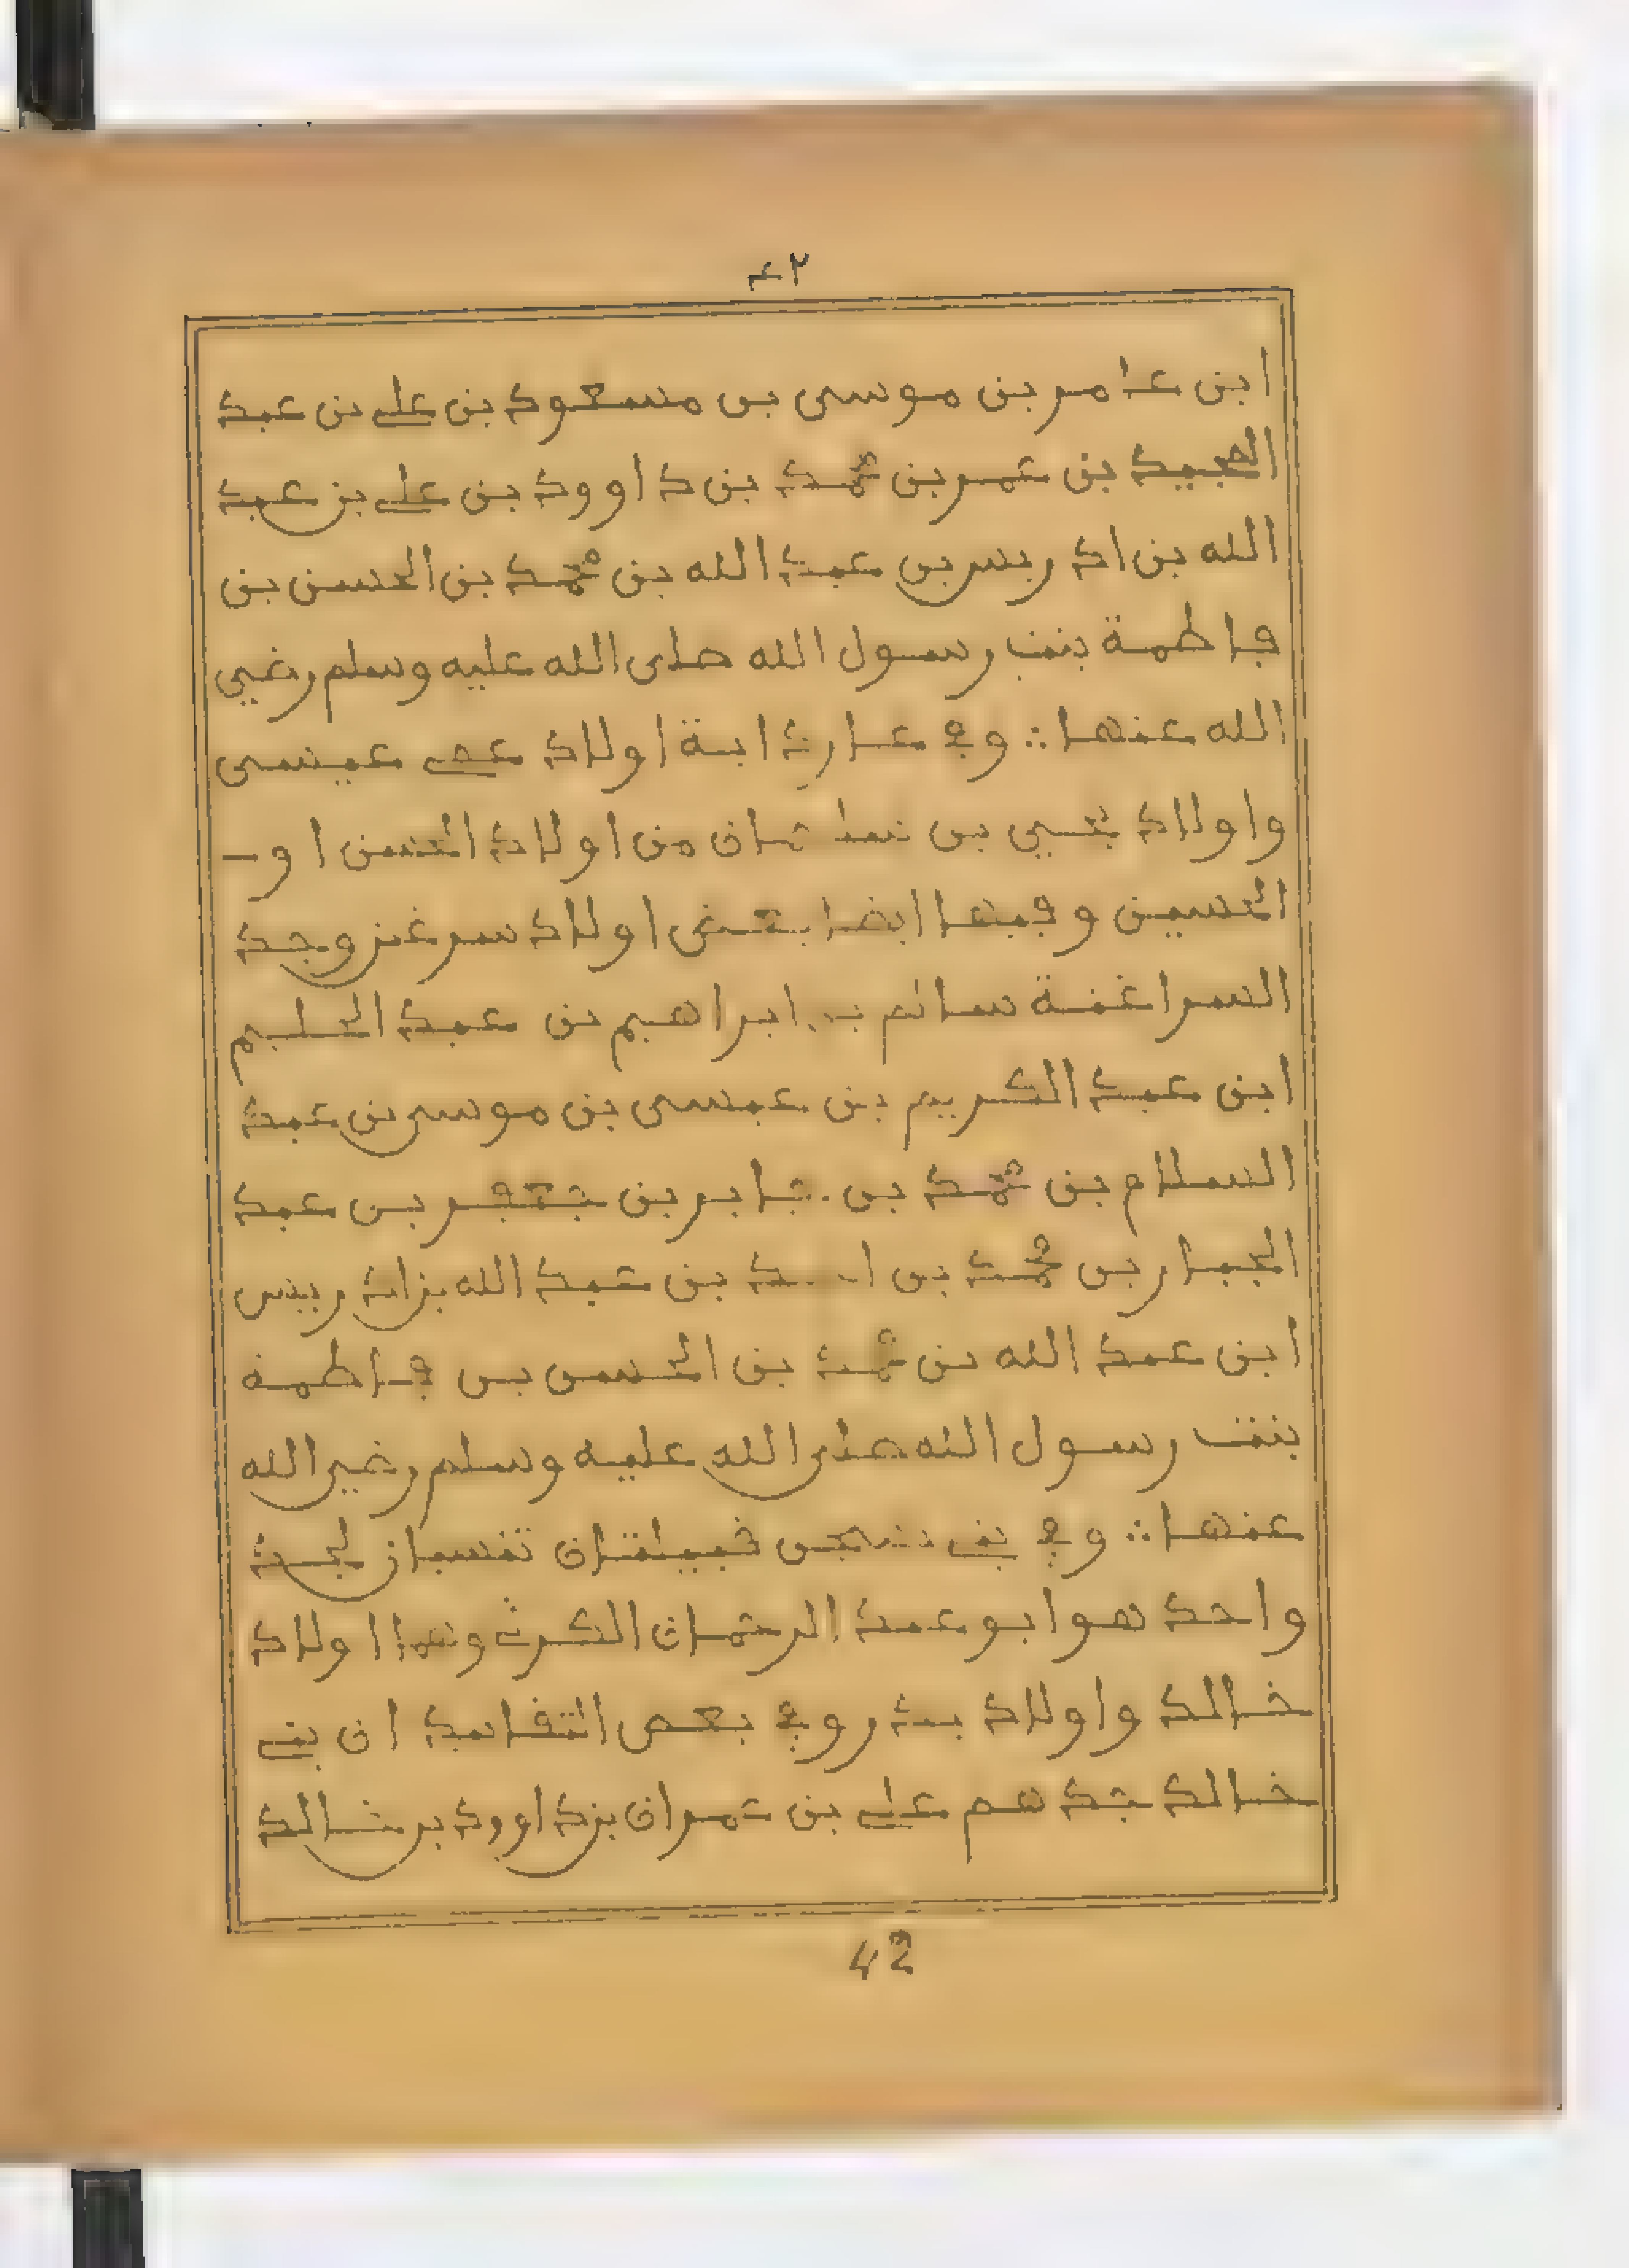 ٤٢
ابن عامر بن موسى بن مسعود بن علي بن عبد
العبيد بن عمر بن محمد بن داوود بن علي بن عبد
الله بن ادريس بن عبد الله بن محمد بن الحسن بن
فاطمة بنت رسول الله صلى الله عليه وسلم رضي
الله عنها ∴ وفي عارث ابة اولاد عمي عيسى
واولاد يحيى بن من اولاد الحسن او
الحسين وفيها ايضا بعض اولاد سرغز وجد
السراغنة سالم بن ابراهيم بن عبد الحليم
ابن عبد الكريم بن عيسى بن موسى بن عبد
السلام بن محمد بن جابر بن جعفر بن عبد
الجبار بن محمد بن بن عبد الله بن ادريس
ابن عبد الله بن محمد بن الحسن بن فاطمة
بنت رسول الله صلى الله عليه وسلم رضي الله
عنها ∴ وفي بني قبيلتان تنسبان لجد
واحد هو ابو عبد الرحمان الكرث وهما اولاد
خالد واولاد بدر وفي بعض التقاييد ان بني
خالد جدهم علي بن عمران بن داوود بن خالد
42